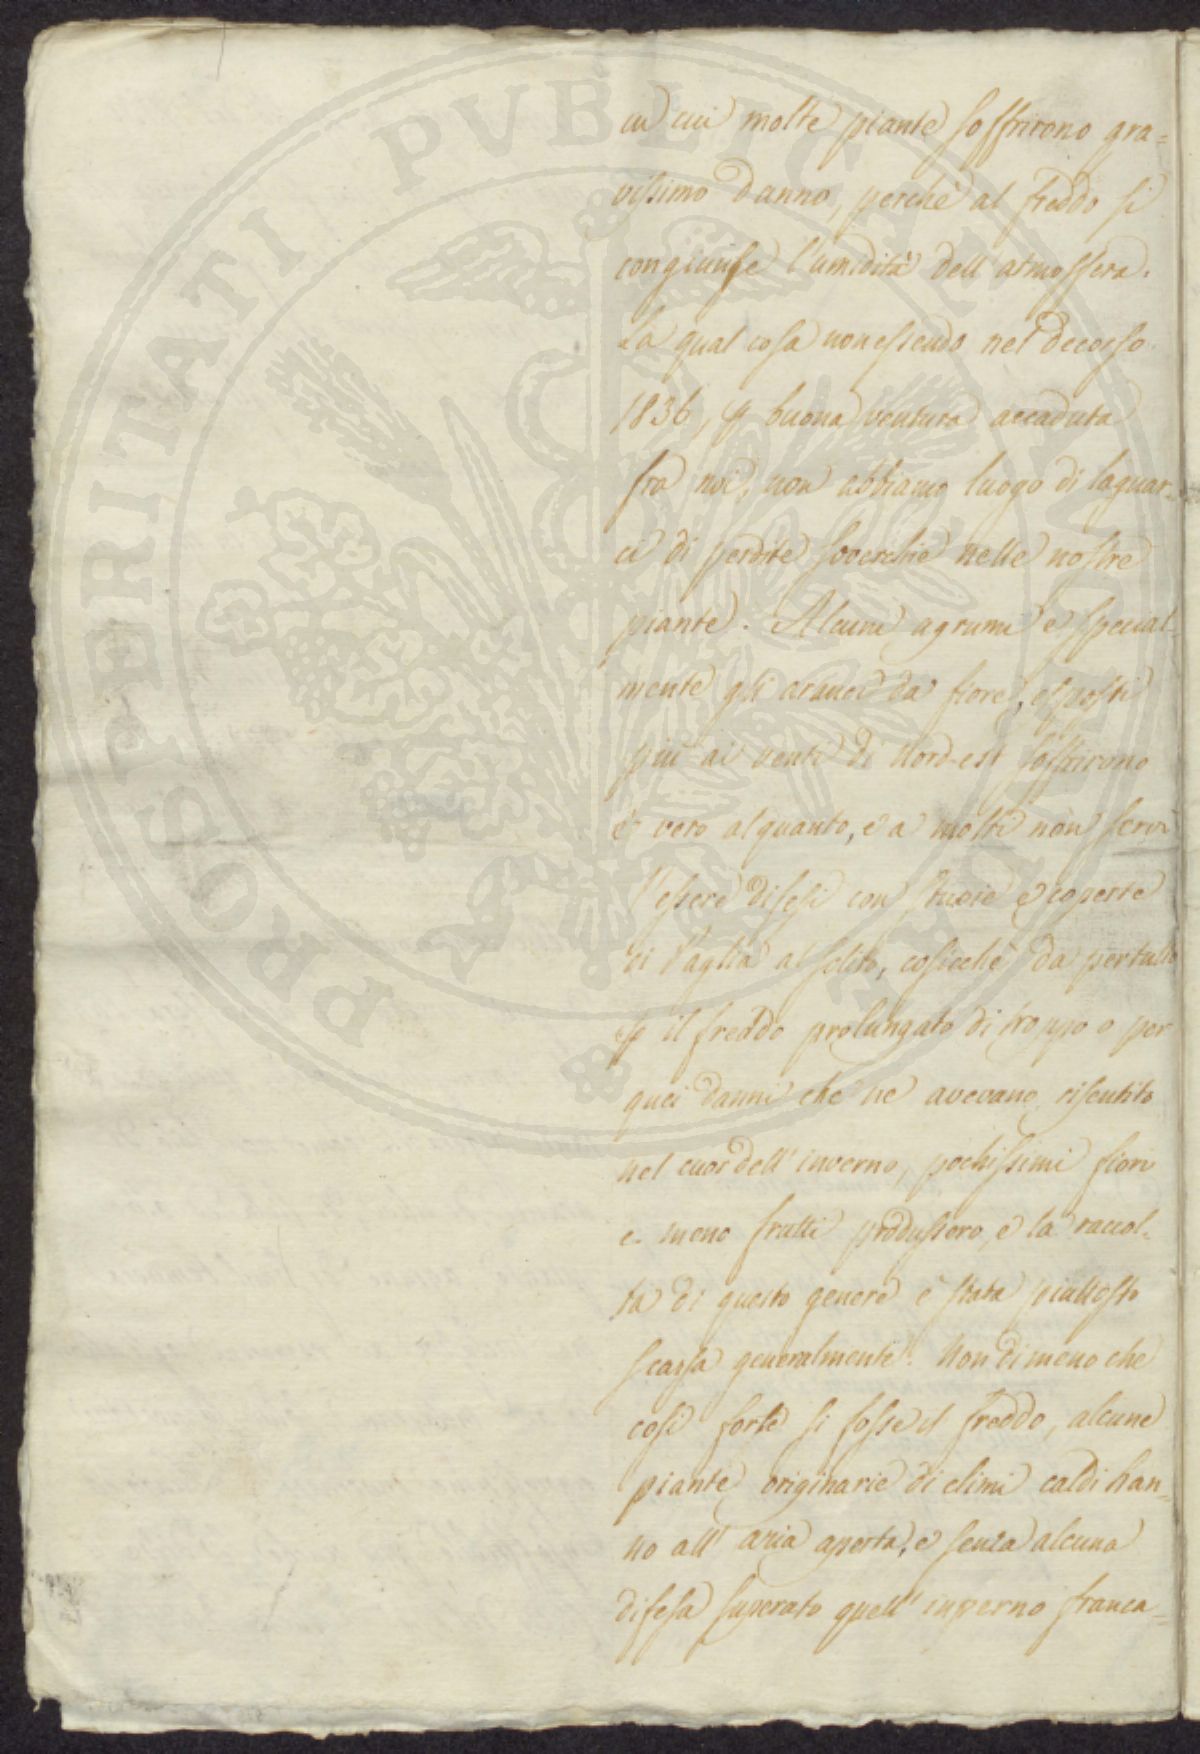 in cui molte piante soffrirono gra=
vissimo danno, perchè al freddo si
congiunse l'umidità dell'atmosfera.
La qual cosa non essendo nel decorso
1836, p buona ventura accaduta
fra noi, non abbiamo luogo di lagnar-
ci di perdite soverchie nelle nostre
piante. Alcuni agrumi e special
mente gli aranci da fiore, esposti
più ai venti di Nord-est soffrirono
è vero alquanto, e a molti non servì
l'essere difesi con stuoie e coperte
di Paglia al solito, cosicchè da pertutto
p il freddo prolungato di troppo o per
quei danni che ne avevano risentito
nel cuor dell'inverno, pochissimi fiori
e meno frutti produssero, e la raccol-
ta di questo genere è stata piuttosto
scarsa generalmente. Non di meno che
così forte si fosse il freddo, alcune
piante originarie di climi caldi han-
no all'aria aperta, e senza alcuna
difesa superato quell'inverno franca=
PROSPERITATI PVBLICAE